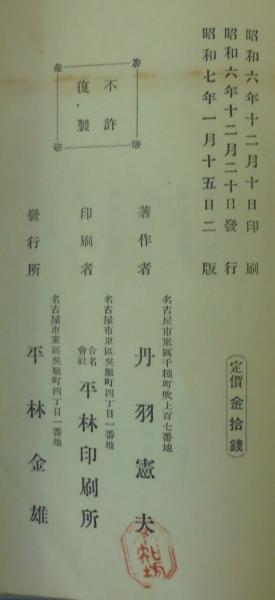 昭和六年十二月十日印刷
昭和六年十二月二十日發行
昭和七年一月十五日二版
(定價金拾錢)
不許
復製
名古屋市東區千種町吹上百七番地
著作者 丹羽憲夫
名古屋市東區吳服町四丁目一番地
印刷者 合名會社 平林印刷所
名古屋市東區吳服町四丁目一番地
發行所 平林金雄